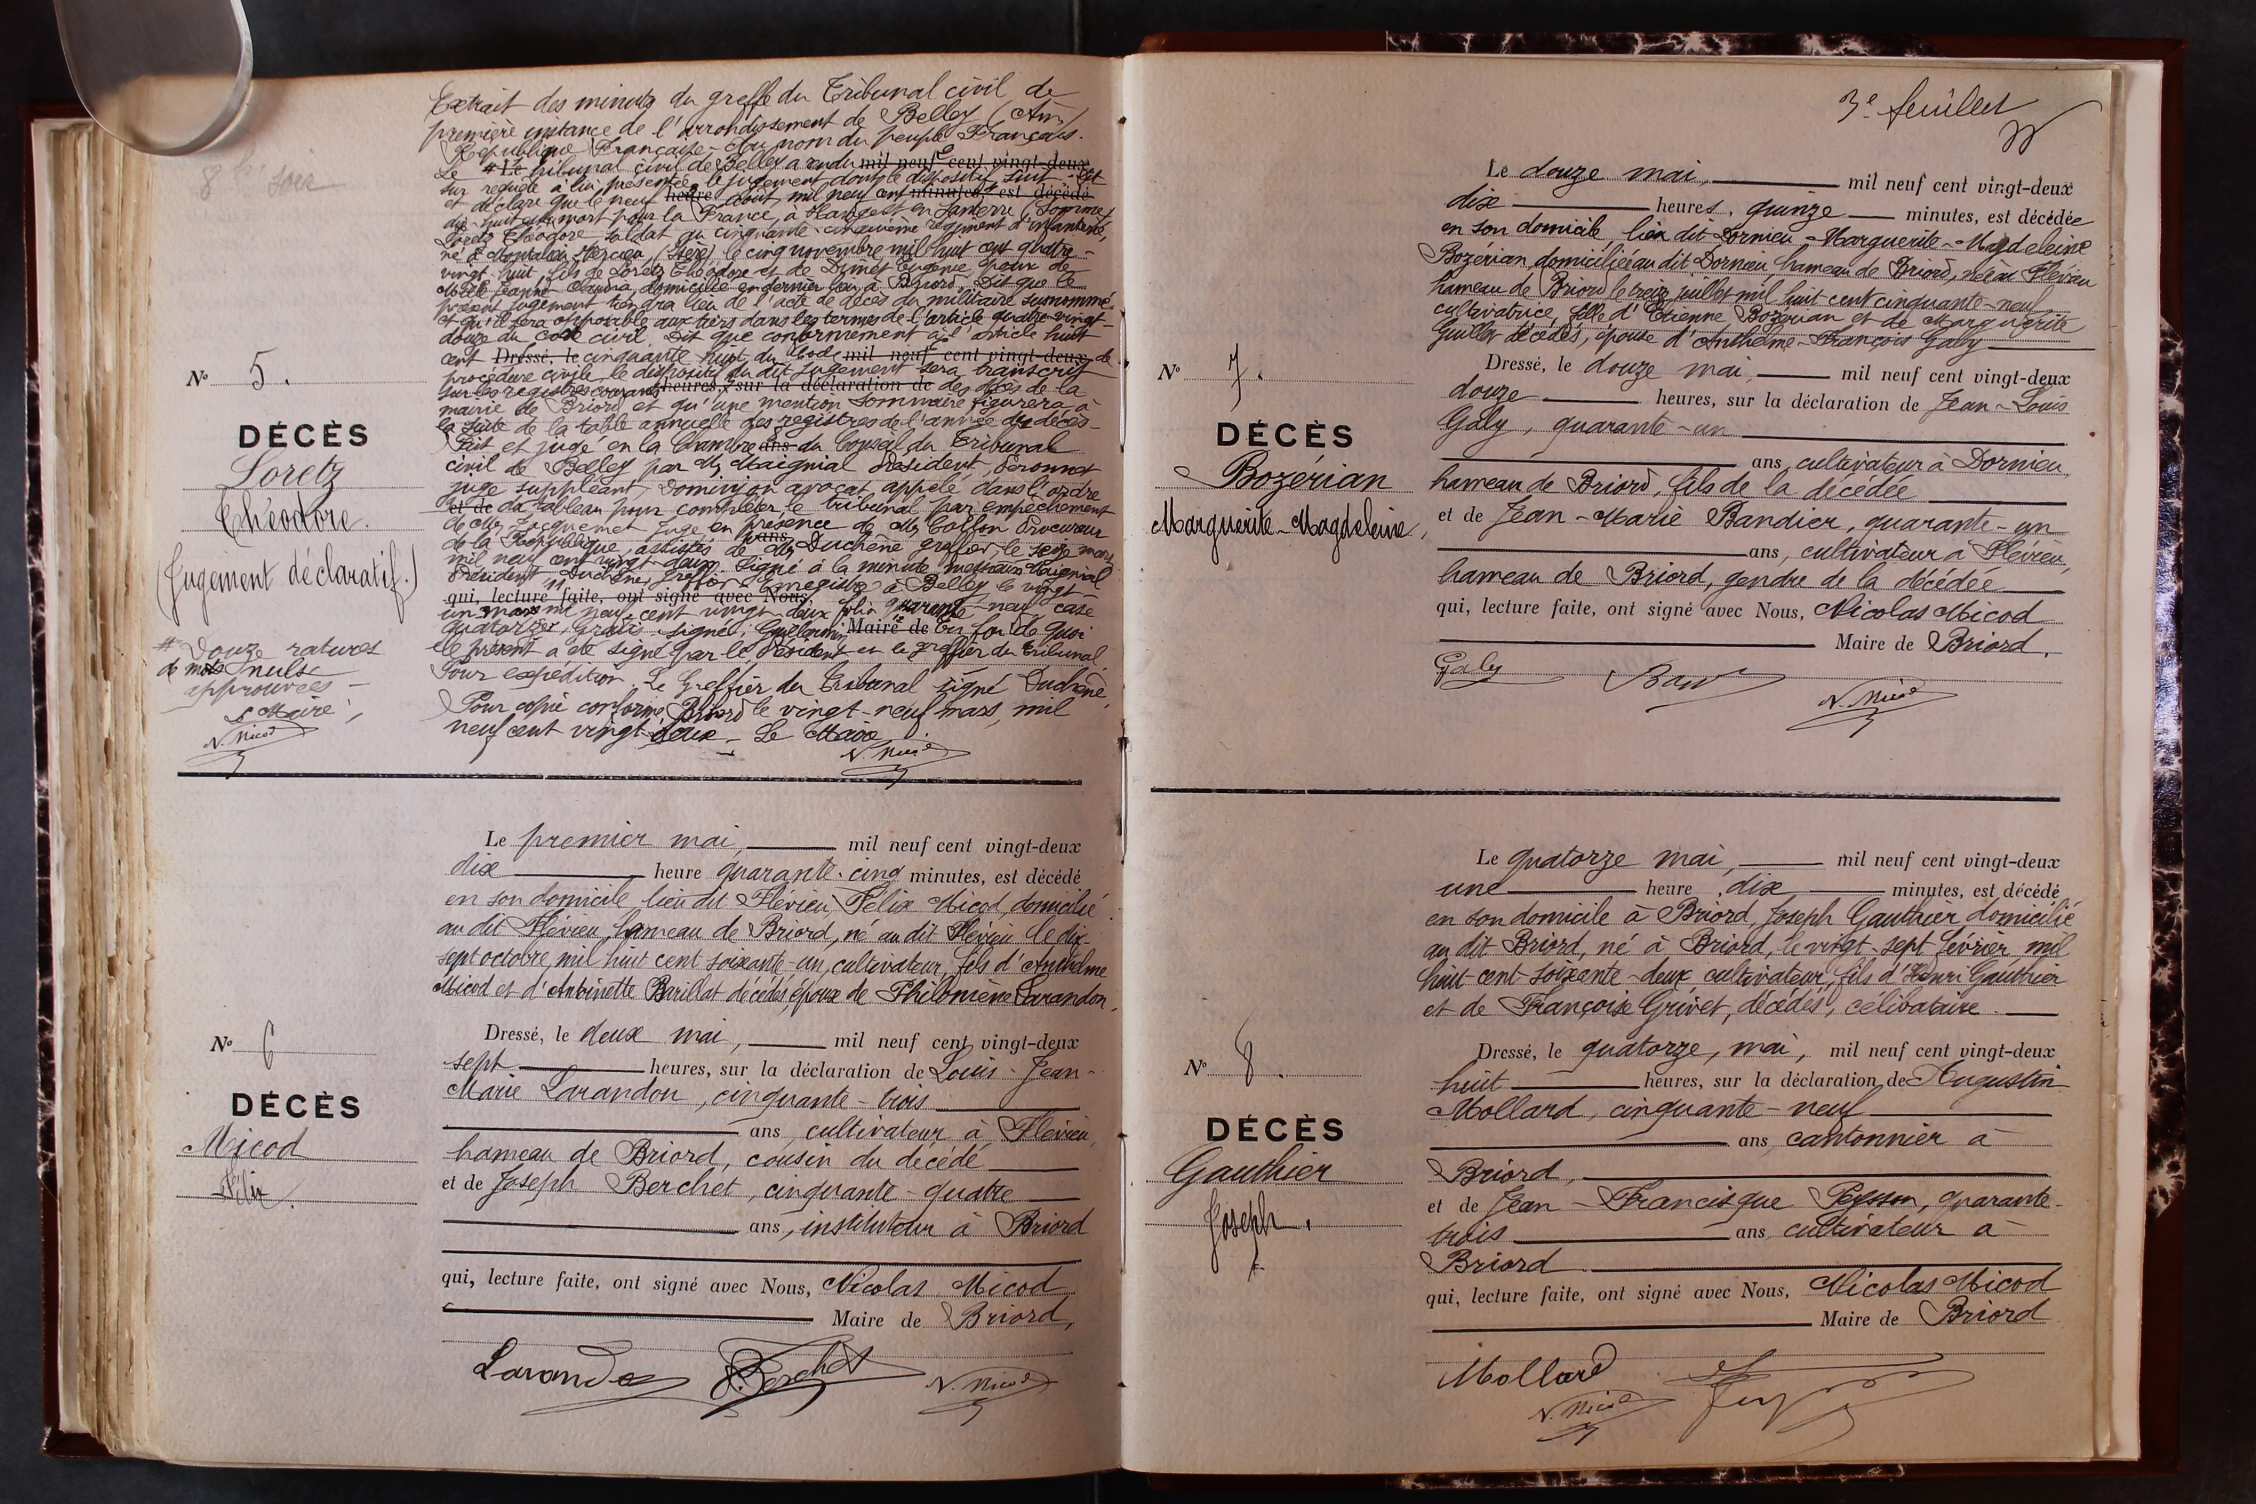 Extrait des minutes du greffe du Tribunal civil de
première instance de l'arrondissement de Belley (Ain)
République Française - Au nom du peuple Français.
Le # Le tribunal civil de Belley a rendu mil neuf cent vingt-deux
sur requête à lui présentée le jugement dont le dispositif suit
et déclare que le neuf heure août mil neuf cent minutes est décédé
dix-huit est mort pour la France, à Hangest en Santerre (Somme)
Loretz Théodore soldat au cinquante-cinquième régiment d'infanterie,
né à Montalieu Vercieu (Isère) le cinq novembre mil huit cent quatre-
vingt-huit, fils de Loretz Théodore et de Eugénie, époux de
Jeanne Claudia, domicilié en dernier lieu à Briord. Dit que le
présent jugement tiendra lieu de l'acte de décès du militaire surnommé
et qu'il sera opposable aux tiers dans les termes de l'article quatre-vingt-
douze du Code civil. Dit que conformément à l'article huit
cent Dressé, le cinquante huit du Code mil neuf cent vingt-deux, de
procédure civile le dispositif du dit jugement sera transcrit
sur les registres courants heures, sur la déclaration de des décès de la
mairie de Briord et qu'une mention sommaire figurera à
la suite de la table annuelle des registres de l'année du décès-
Fait et jugé en la Chambre ans du Conseil du Tribunal
civil de Belley par MM Maignial Président, Peronnet
juge suppléant, Dominjon avocat appelé dans l'ordre
et de du tableau pour compléter le tribunal par empêchement
de Mr Jacquemet Juge en présence de Mr Procureur
de la République, assistés de ans Mr Duchêne greffier, le seize mars
mil neuf cent vingt deux. Signé à la minute messieurs Maignial
Président Duchêne, greffier Enregistré à Belley le vingt-
qui, lecture faite, ont signé avec Nous,
un mars mil neuf cent vingt-deux folio quarante-neuf case
quatorze, Gratis signé, Guillermin Maire de En foi de quoi
le présent a été signé par le Président et le greffier du Tribunal
Pour expédition. Le Greffier du Tribunal signé Duchêne,
Pour copie conforme, Briord le vingt-neuf mars, mil
neuf cent vingt deux - Le Maire
N. Micod
No 5.
DÉCÈS
Loretz
Théodore.
(Jugement déclaratif.)
# Douze ratures
de mots nuls
approuvées -
Le Maire,
N. Micod
Le premier mai, mil neuf cent vingt-deux
dix heure quarante-cinq minutes, est décédé
en son domicile lieu dit Flévieu, Félix Micod, domicilié
au dit Flévieu, hameau de Briord, né au dit Flévieu le dix-
sept octobre mil huit cent soixante-un, cultivateur, fils d'Anthelme
Micod et d'Antoinette Barillat décédés, époux de Philomène Larandon,
Dressé, le deux mai, mil neuf cent vingt-deux
sept heures, sur la déclaration de Louis-Jean-
Marie Larandon, cinquante-trois
ans, cultivateur à Flévieu,
hameau de Briord, cousin du décédé
et de Joseph Berchet, cinquante-quatre
ans, instituteur à Briord
qui, lecture faite, ont signé avec Nous, Nicolas Micod
Maire de Briord,
Larandon J. Berchet N. Micod
No 6
DÉCÈS
Micod
Félix.
3e feuillet
Le douze mai, mil neuf cent vingt-deux
dix heures, quinze minutes, est décédée
en son domicile, lieu dit Dornieu - Marguerite-Magdeleine
Bozérian, domiciliée au dit Dornieu, hameau de Briord, née à Flévieu
hameau de Briord le treize juillet mil huit cent cinquante-neuf,
cultivatrice, fille d'Etienne Bozérian et de Marguerite
Guillet décédés, épouse d'Anthelme-François Galy
Dressé, le douze mai, mil neuf cent vingt-deux
douze heures, sur la déclaration de Jean-Louis
Galy, quarante-un
ans, cultivateur à Dornieu,
hameau de Briord, fils de la décédée
et de Jean-Marie Bandier, quarante-un
ans, cultivateur à Flévieu,
hameau de Briord, gendre de la décédée
qui, lecture faite, ont signé avec Nous, Nicolas Micod
Maire de Briord.
Galy N. Micod
No 7.
DÉCÈS
Bozérian
Marguerite-Magdeleine,
Le quatorze mai, mil neuf cent vingt-deux
une heure, dix minutes, est décédé
en son domicile à Briord, Joseph Gauthier domicilié
au dit Briord, né à Briord, le vingt-sept février mil
huit cent-soixante-deux, cultivateur, fils d'Henri Gauthier
et de Françoise Grivet, décédés, célibataire.
Dressé, le quatorze, mai, mil neuf cent vingt-deux
huit heures, sur la déclaration de Augustin
Mollard, cinquante-neuf
ans, cantonnier à
Briord,
et de Jean-Francisque Peysson, quarante-
trois ans, cultivateur à
Briord
qui, lecture faite, ont signé avec Nous, Nicolas Micod
Maire de Briord
Mollard
N. Micod
No 8.
DÉCÈS
Gauthier
Joseph.